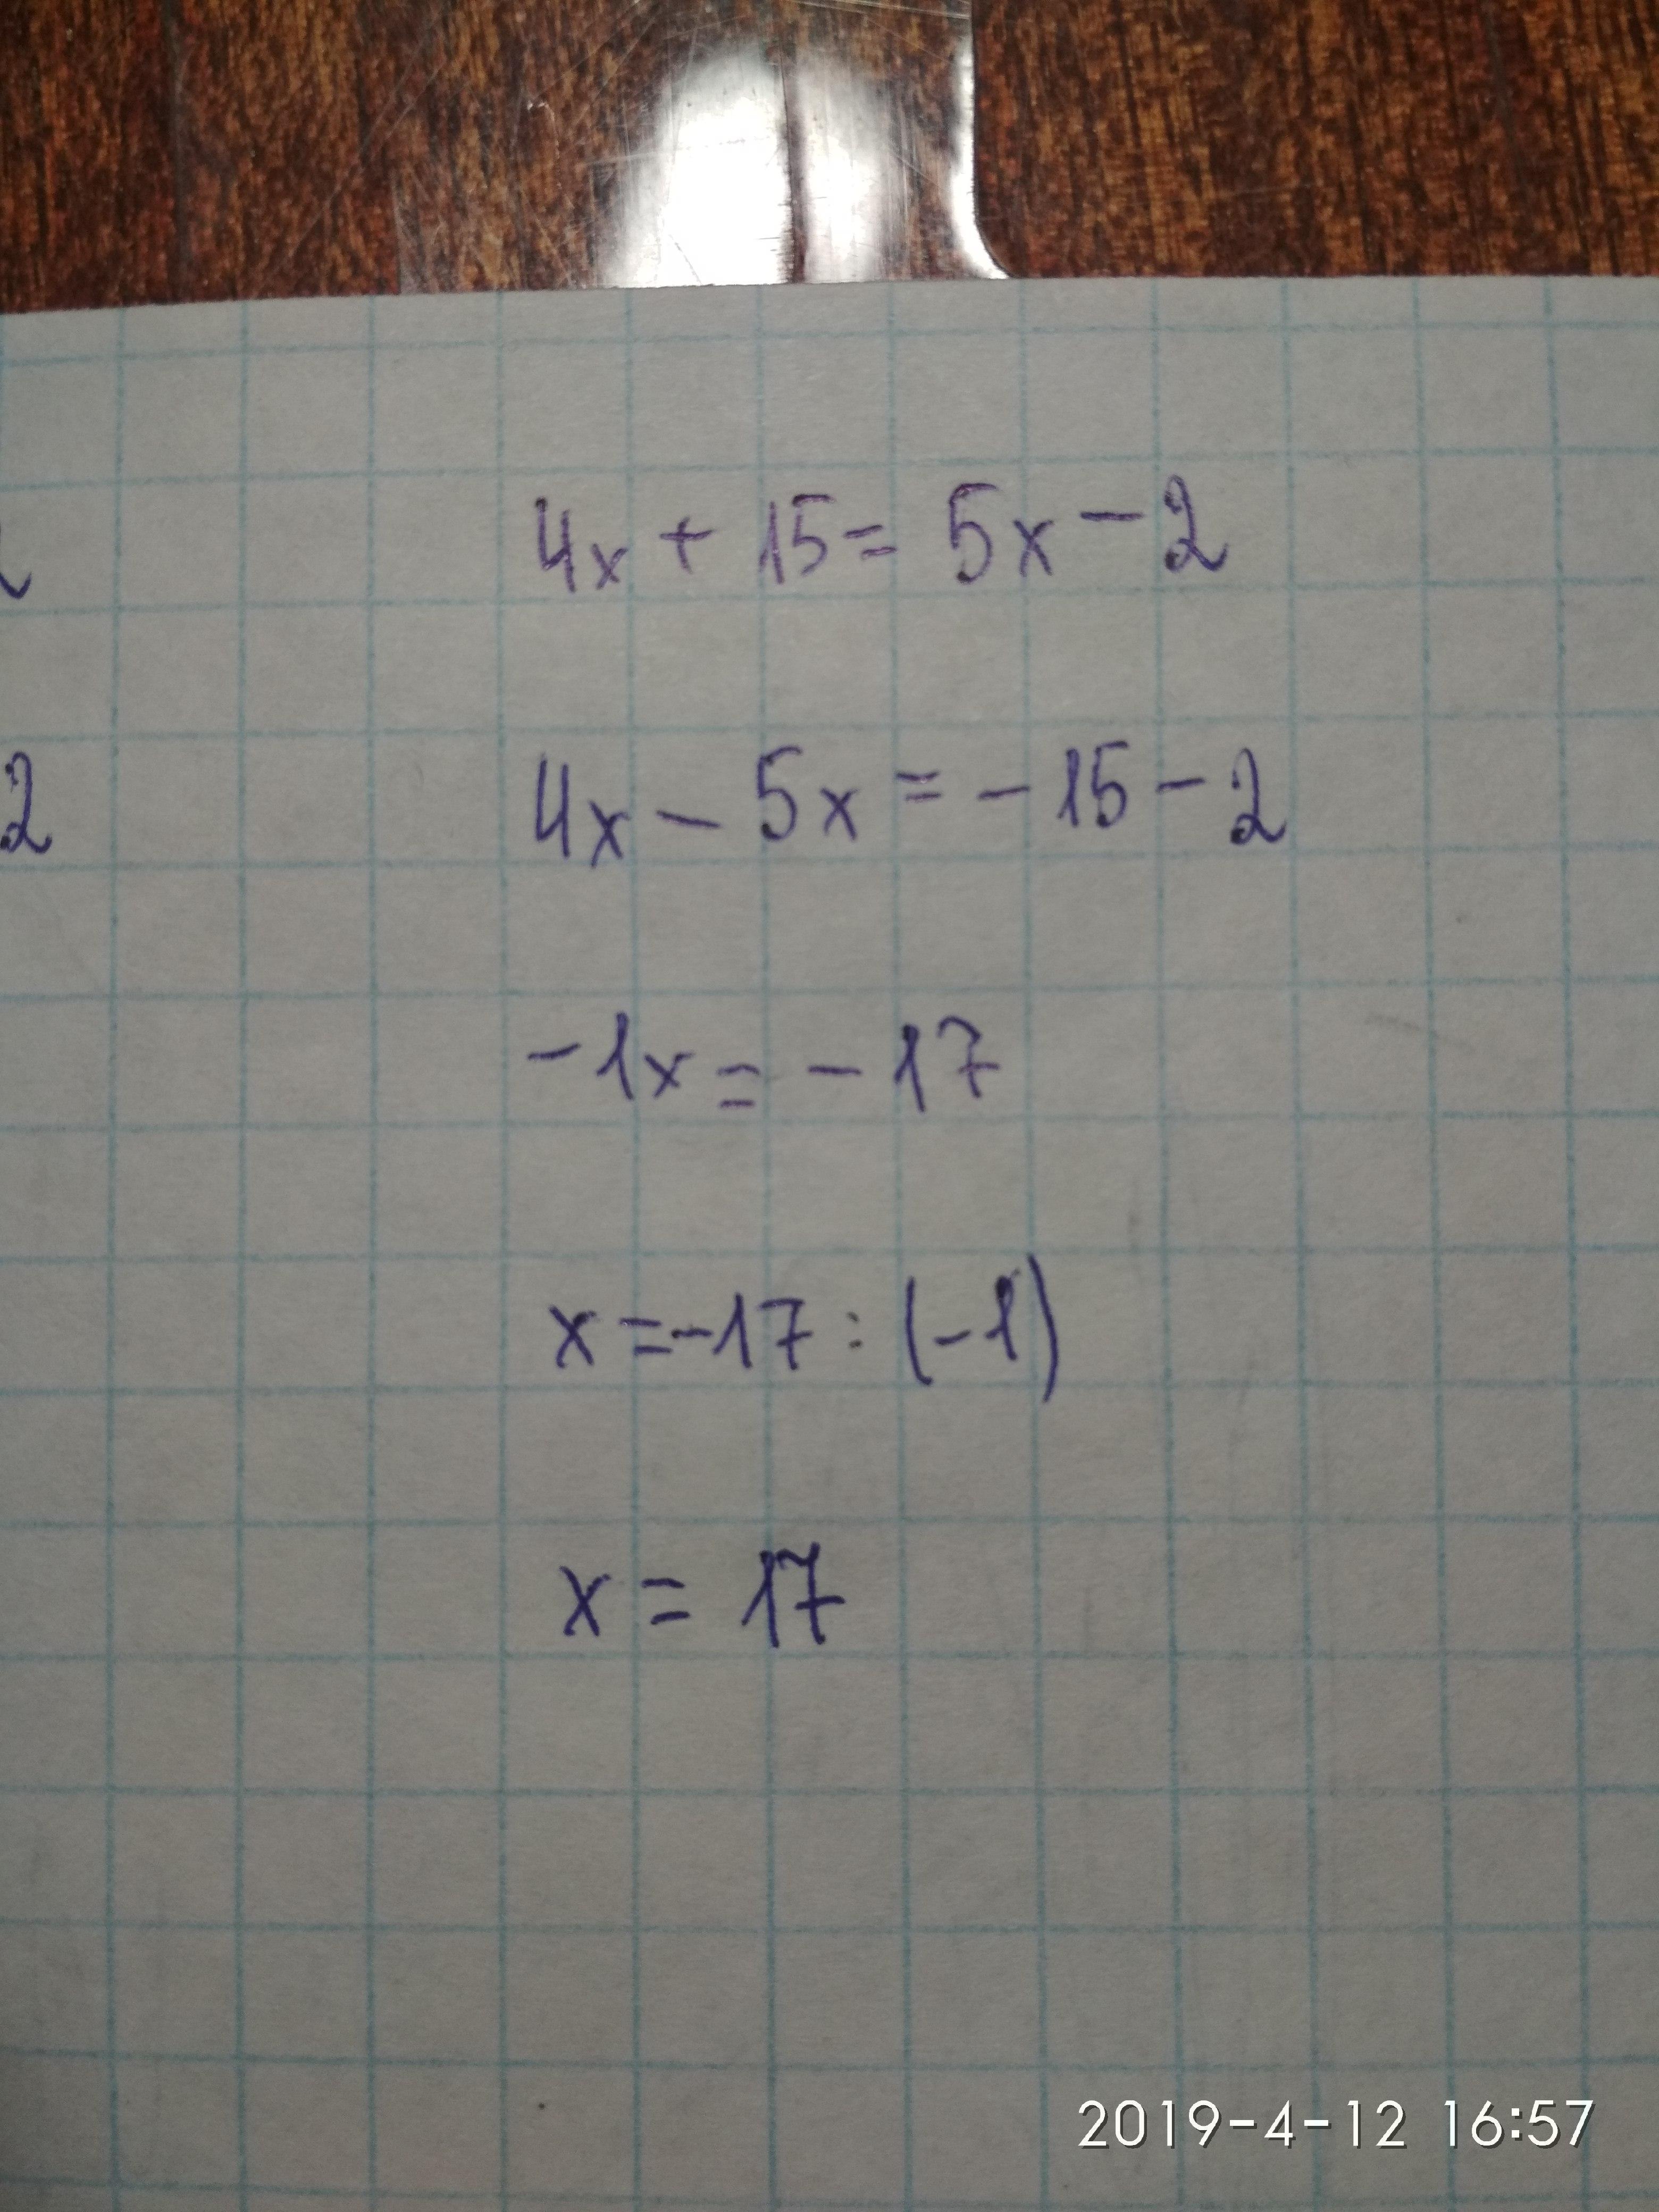 4x + 15 = 5x - 2
2
4x - 5x = - 15 - 2
- 1x = - 17
x = -17 : (-1)
x = 17
2019-4-12 16:57